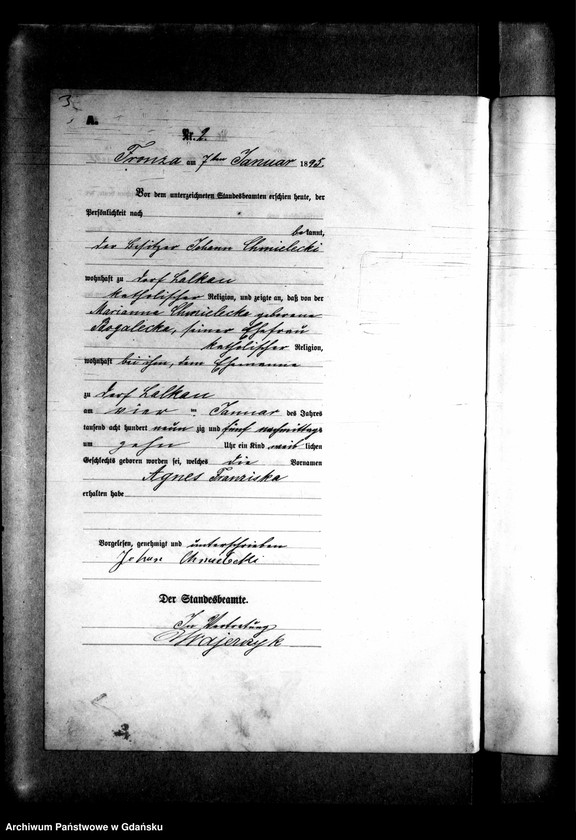 3
A.
Nr. 2.
Fronza am 7ten Januar 1895.
Vor dem unterzeichneten Standesbeamten erschien heute, der
Persönlichkeit nach
bekannt,
der Besitzer Johann Chmielecki
wohnhaft zu Dorf Lalkau
katholischer Religion, und zeigte an, daß von der
Marianna Chmielecka geborene
Rogalecka, seiner Ehefrau
katholischer Religion,
wohnhaft bei ihm, dem Ehemanne
zu Dorf Lalkau
am vier ten Januar des Jahres
tausend acht hundert neun zig und fünf nachmittags
um zehn Uhr ein Kind weib lichen
Geschlechts geboren worden sei, welches die Vornamen
Agnes Franziska
erhalten habe
Vorgelesen, genehmigt und unterschrieben
Johan Chmielecki
Der Standesbeamte.
In Vertretung
Majerzyk
Archiwum Państwowe w Gdańsku